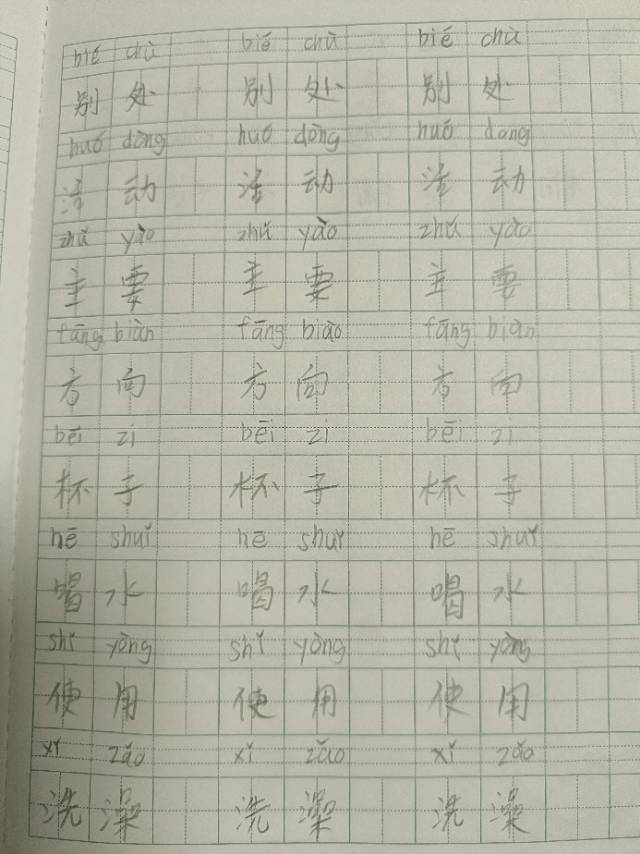 bié chù bié chù bié chù
别处 别处 别处
huó dòng huó dòng huó dong
活动 活动 活动
zhǔ yào zhǔ yào zhǔ yào
主要 主要 主要
fāng biàn fāng biào fāng biàn
方向 方向 方向
bēi zi bēi zi bēi zi
杯子 杯子 杯子
hē shuǐ hē shuǐ hē shuǐ
喝水 喝水 喝水
shǐ yòng shǐ yòng shǐ yòng
使用 使用 使用
xǐ zǎo xǐ zǎo xǐ zǎo
洗澡 洗澡 洗澡